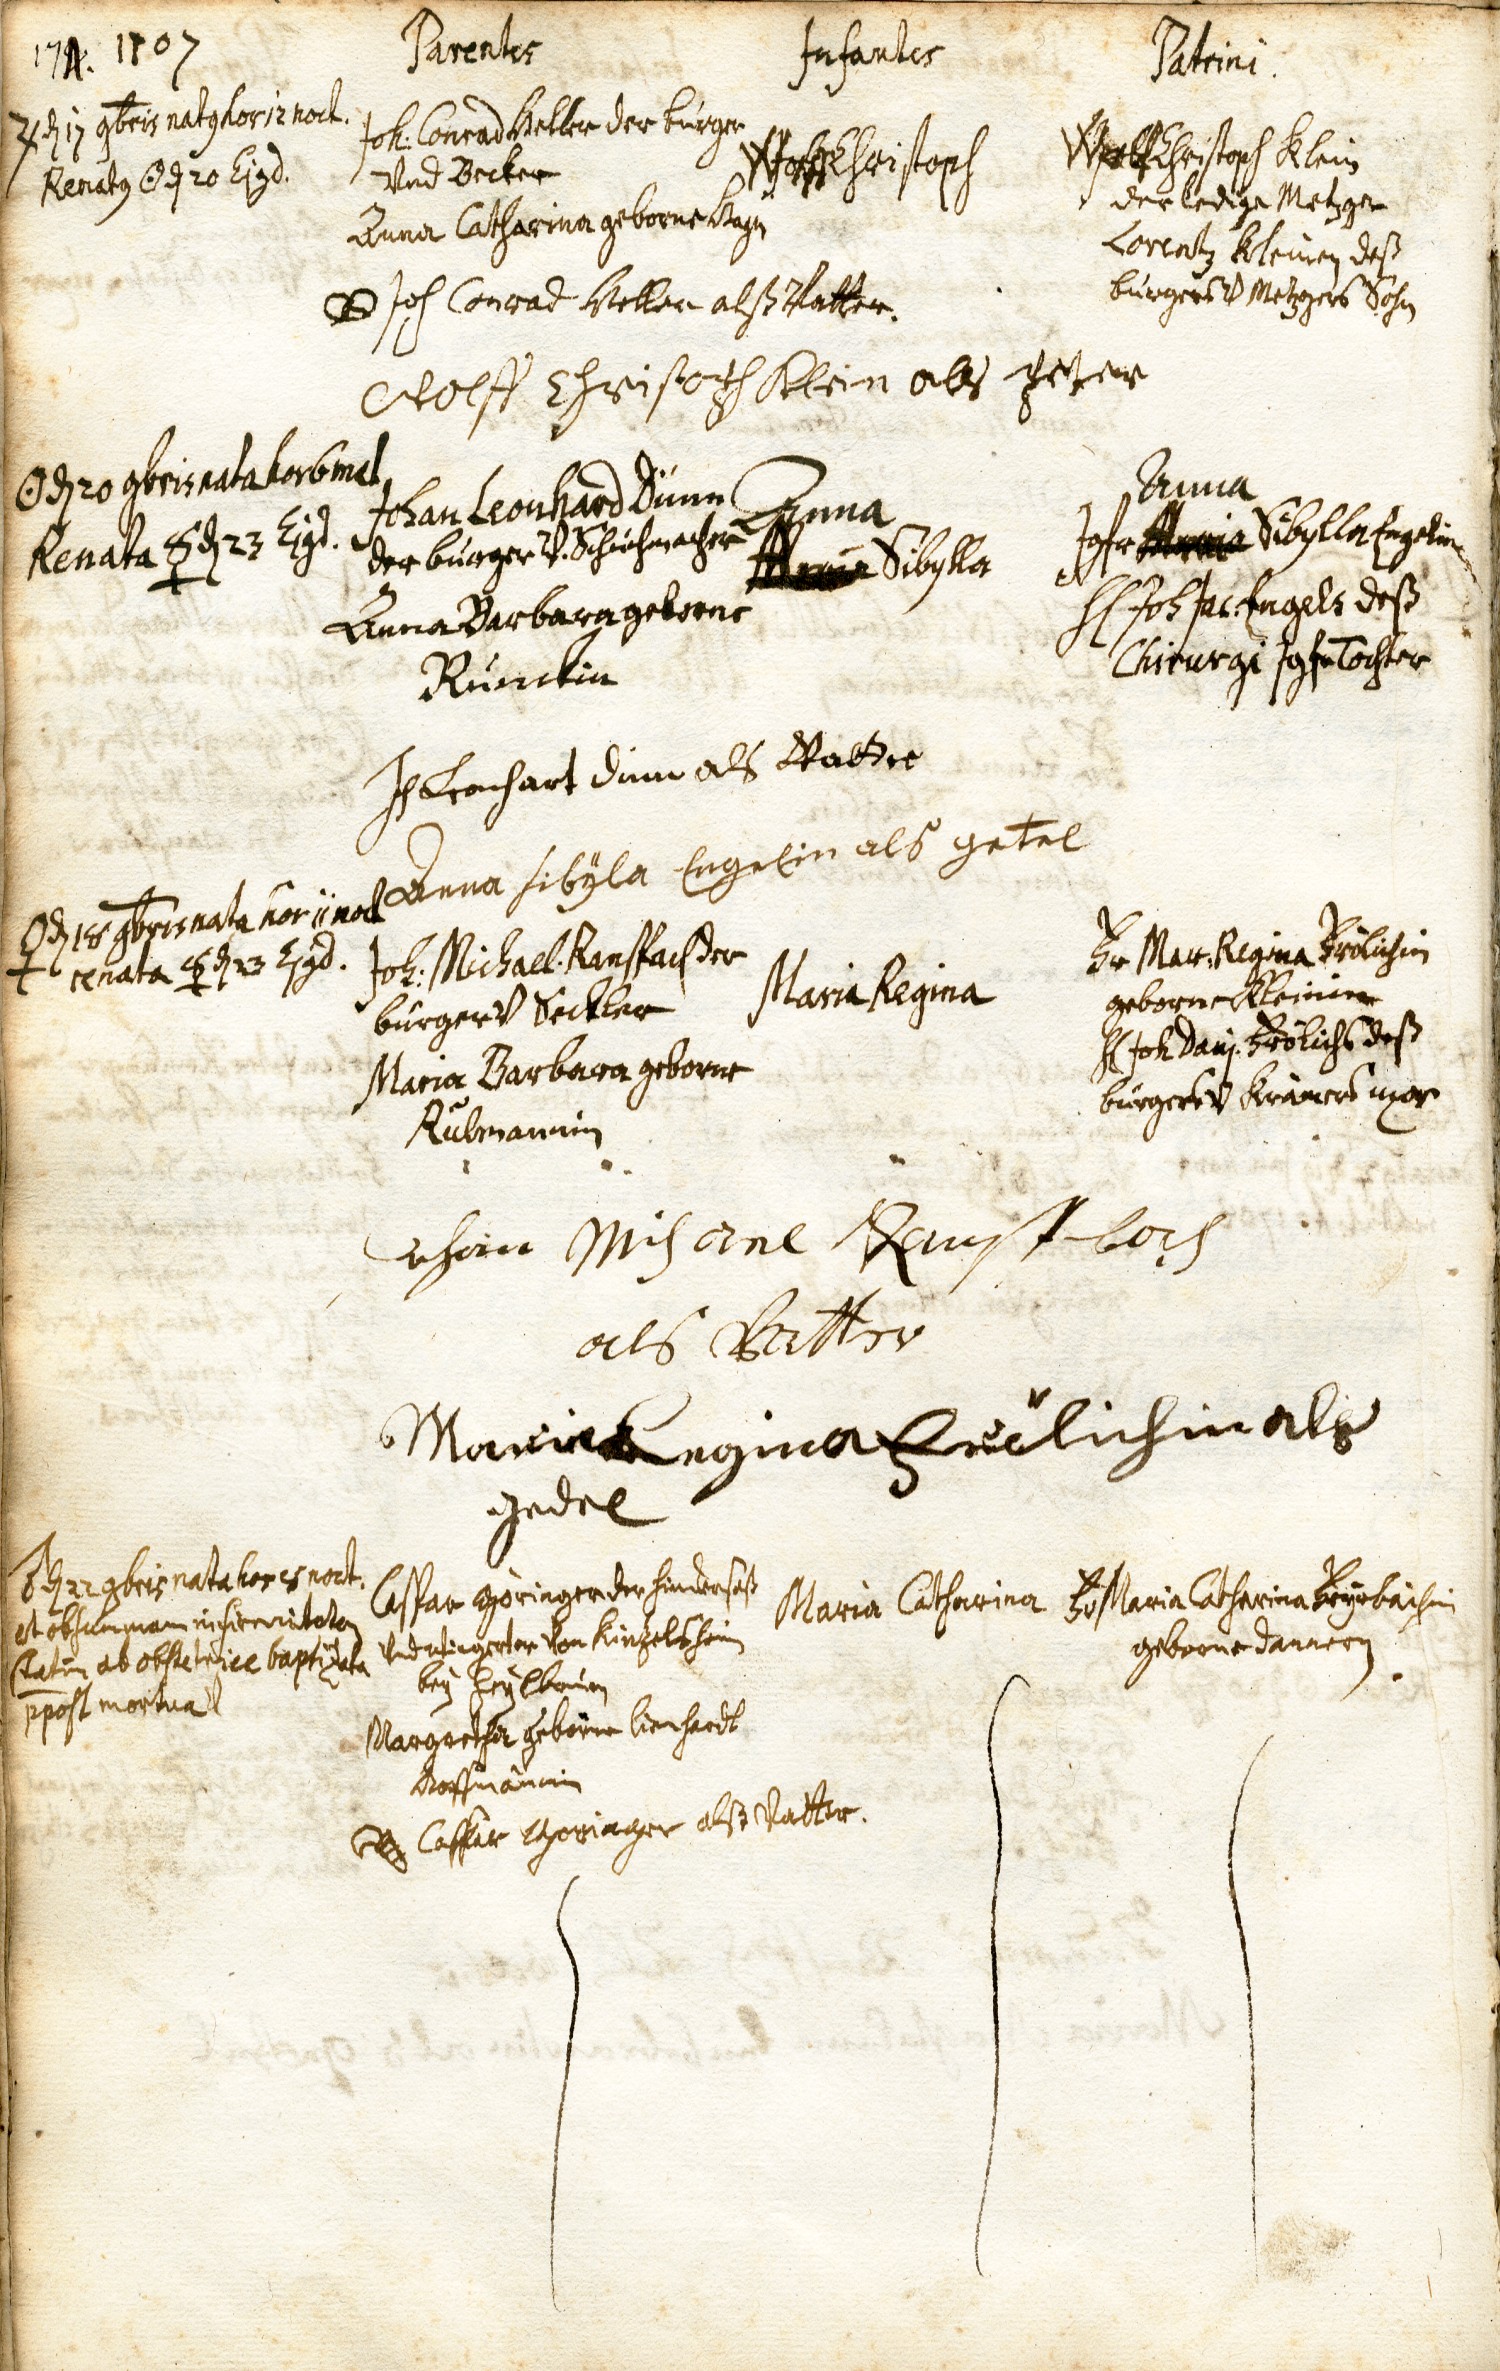 1707
Parentes
Infantes
Patrini.
♃ d 17 9bris natg hor 12 noct.
Renatg ☉ d 20 Ejgd.
Joh: Conrad Heller der burger
Vnd Becker
Anna Catharina geborne
Wolff Christoph
Wolff Christoph Klein
der ledige Metzger
Lorentz Kleinen deß
burgers V Metzgers Sohn
Joh Conrad Heller alß Vatter.
Wolff Christoph Klein als
☉ d 20 9bris nata hor 6 mat.
Renata ☿ d 23 Ejgd.
Johan Leonhard Dünn
der burger V. Schuhmacher
Anna Barbara geborne
Rünckin
Anna
Maria Sibylla
Anna
Jgfr Maria Sibylla Engelin
H Joh Jac: Engels deß
Chirurgi Jgfr Tochter
Leonhart dinn als Vatter
Anna sibÿla Engelin als getel
♀ d 18 9bris nata hor 11 noct
renata ☿ d 23 Ejgd.
Joh: Michael Ranspach der
burger V Seckler
Maria Barbara geborne
Rübmannin
Maria Regina
Fr Mar. Regina Frölichin
geborne Kleinin
H Joh Danj. Frölichs deß
burgers V Krämers uxor
Michael
als Vatter
Maria Regina Frölichin als
gedel
♂ d 22 9bris nata hor 5 noct.
et ob summam infirmitatem
statim ab obstetrice baptizata
post mortua
Caspar Göringer der hindersaß
Vnd wingerter Von Kinzelsheim
bey Heylbrunn
Margretha geborne lienhardt
Hoffmännin
Maria Catharina
Fr Maria Catharina Feyrbachin
geborne Dannern
Caspar Göringer alß Vatter.